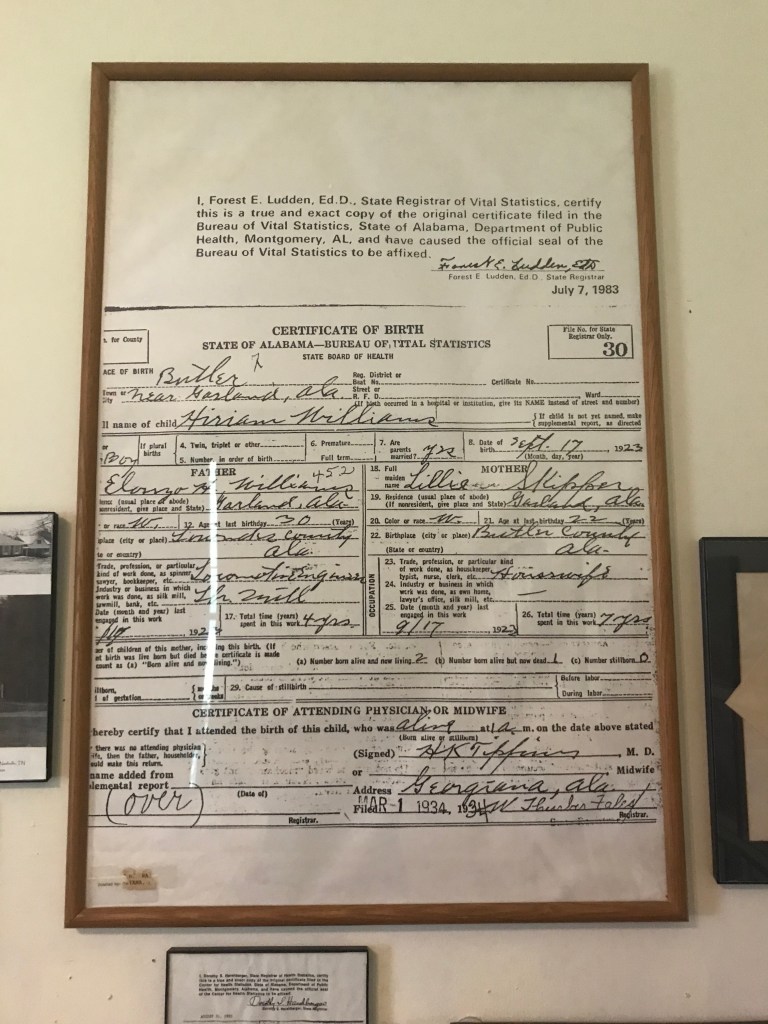 I, Forest E. Ludden, Ed.D., State Registrar of Vital Statistics, certify
this is a true and exact copy of the original certificate filed in the
Bureau of Vital Statistics, State of Alabama, Department of Public
Health, Montgomery, AL, and have caused the official seal of the
Bureau of Vital Statistics to be affixed.
Forest E. Ludden, EdD
Forest E. Ludden, Ed.D. State Registrar
July 7, 1983
CERTIFICATE OF BIRTH
STATE OF ALABAMA—BUREAU OF VITAL STATISTICS
STATE BOARD OF HEALTH
. for County
File No. for State
Registrar Only.
30
ACE OF BIRTH Butler
Reg. District or
Beat No. Certificate No.
Town or
City near Garland, ala.
Street or
R. F. D. Ward
(If birth occurred in a hospital or institution, give its NAME instead of street and number)
ll name of child Hiriam Williams
{ If child is not yet named, make
supplemental report, as directed
or
Boy
If plural
births
4. Twin, triplet or other
5. Number in order of birth
6. Premature
Full term
7. Are
parents
married? yrs
8. Date of
birth Sept. 17, 1923
(Month, day, year)
FATHER
Elonzo H. Williams 452
ence (usual place of abode)
nonresident, give place and State) Garland, ala
or race W. 12. Age at last birthday 30 (Years)
place (city or place) Lowndes County
te or country) ala.
Trade, profession, or particular
kind of work done, as spinner,
sawyer, bookkeeper, etc.
Industry or business in which
work was done, as silk mill,
sawmill, bank, etc.
Date (month and year) last
engaged in this work
17. Total time (years)
spent in this work 4 yrs
18. Full
maiden
name
MOTHER
Lillie Skipper
19. Residence (usual place of abode)
(If nonresident, give place and State) Garland, ala.
20. Color or race W. 21. Age at last birthday 22 (Years)
22. Birthplace (city or place) Butler County
(State or country) ala.
OCCUPATION
23. Trade, profession, or particular kind
of work done, as housekeeper,
typist, nurse, clerk, etc. Housewife
24. Industry or business in which
work was done, as own home,
lawyer's office, silk mill, etc.
25. Date (month and year) last
engaged in this work
9/17, 1923
26. Total time (years)
spent in this work 7 yrs
er of children of this mother, including this birth. (If
nt birth was live born but died before certificate is made
count as (a) "Born alive and now living.")
(a) Number born alive and now living 2 (b) Number born alive but now dead 1 (c) Number stillborn 0
illborn,
of gestation
29. Cause of stillbirth
Before labor
During labor
CERTIFICATE OF ATTENDING PHYSICIAN OR MIDWIFE
hereby certify that I attended the birth of this child, who was alive at 1 a. m. on the date above stated
(Born alive or stillborn)
there was no attending physician
ife, then the father, householder,
ould make this return.
(Signed) H K Tippins, M. D.
or Midwife
name added from
lemental report
(over)
(Date of)
Registrar.
Address Georgiana, ala.
Filed MAR-1 1934,
Registrar.